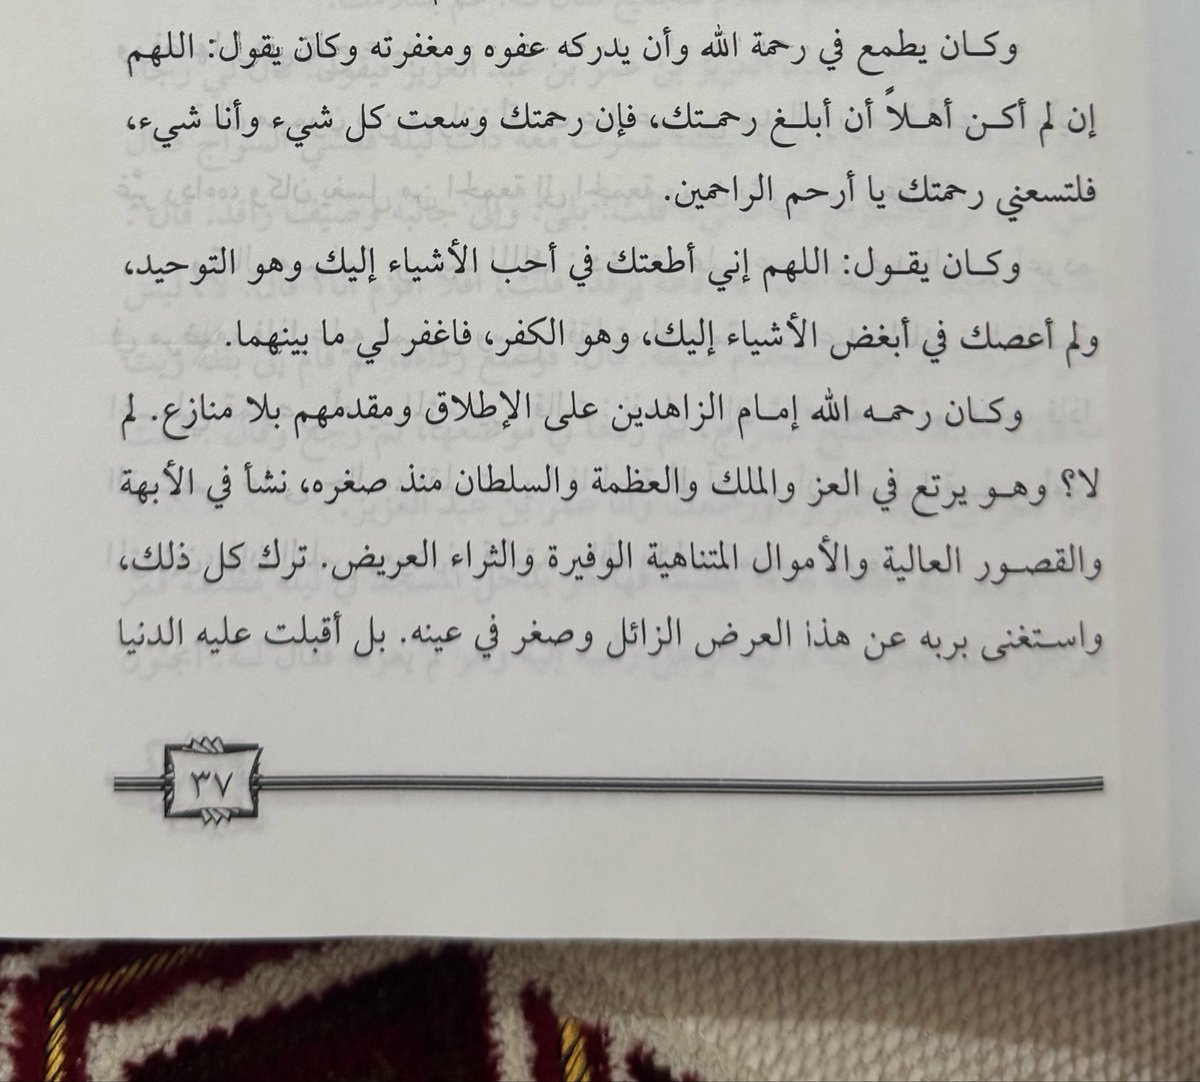 وكان يطمع في رحمة الله وأن يدركه عفوه ومغفرته وكان يقول: اللهم
إن لم أكن أهلاً أن أبلغ رحمتك، فإن رحمتك وسعت كل شيء وأنا شيء،
فلتسعني رحمتك يا أرحم الراحمين.
وكان يقول: اللهم إني أطعتك في أحب الأشياء إليك وهو التوحيد،
ولم أعصك في أبغض الأشياء إليك، وهو الكفر، فاغفر لي ما بينهما.
وكان رحمه الله إمام الزاهدين على الإطلاق ومقدمهم بلا منازع. لم
لا؟ وهو يرتع في العز والملك والعظمة والسلطان منذ صغره، نشأ في الأبهة
والقصور العالية والأموال المتناهية الوفيرة والثراء العريض. ترك كل ذلك،
واستغنى بربه عن هذا العرض الزائل وصغر في عينه. بل أقبلت عليه الدنيا
٣٧